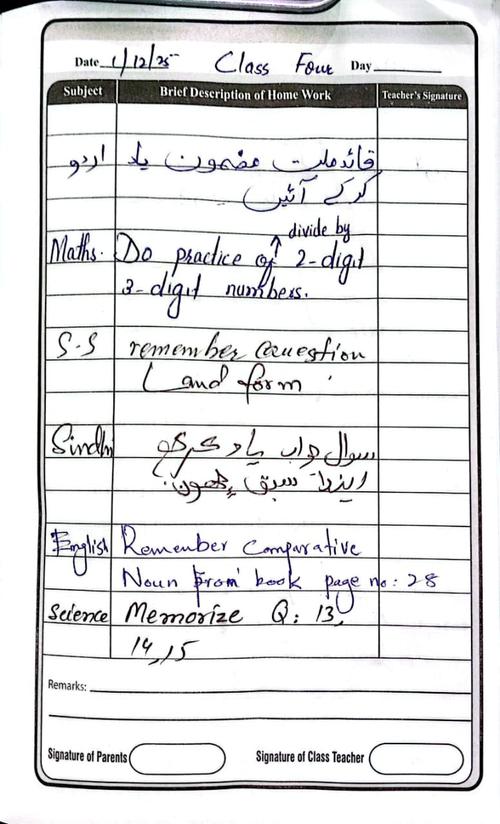 Date 1/12/25 Class Four Day
Subject Brief Description of Home Work Teacher's Signature
اردو قائد ملت مضمون یاد
کر کے آئیں
divide by
Maths. Do practice of 2-digit
3-digit numbers.
S.S remember Question
Land form
Sindhi سوال جواب ياد ڪري
سبق
English Remember Comparative
Noun from book page no: 28
Science Memorize Q: 13,
14,15
Remarks:
Signature of Parents Signature of Class Teacher